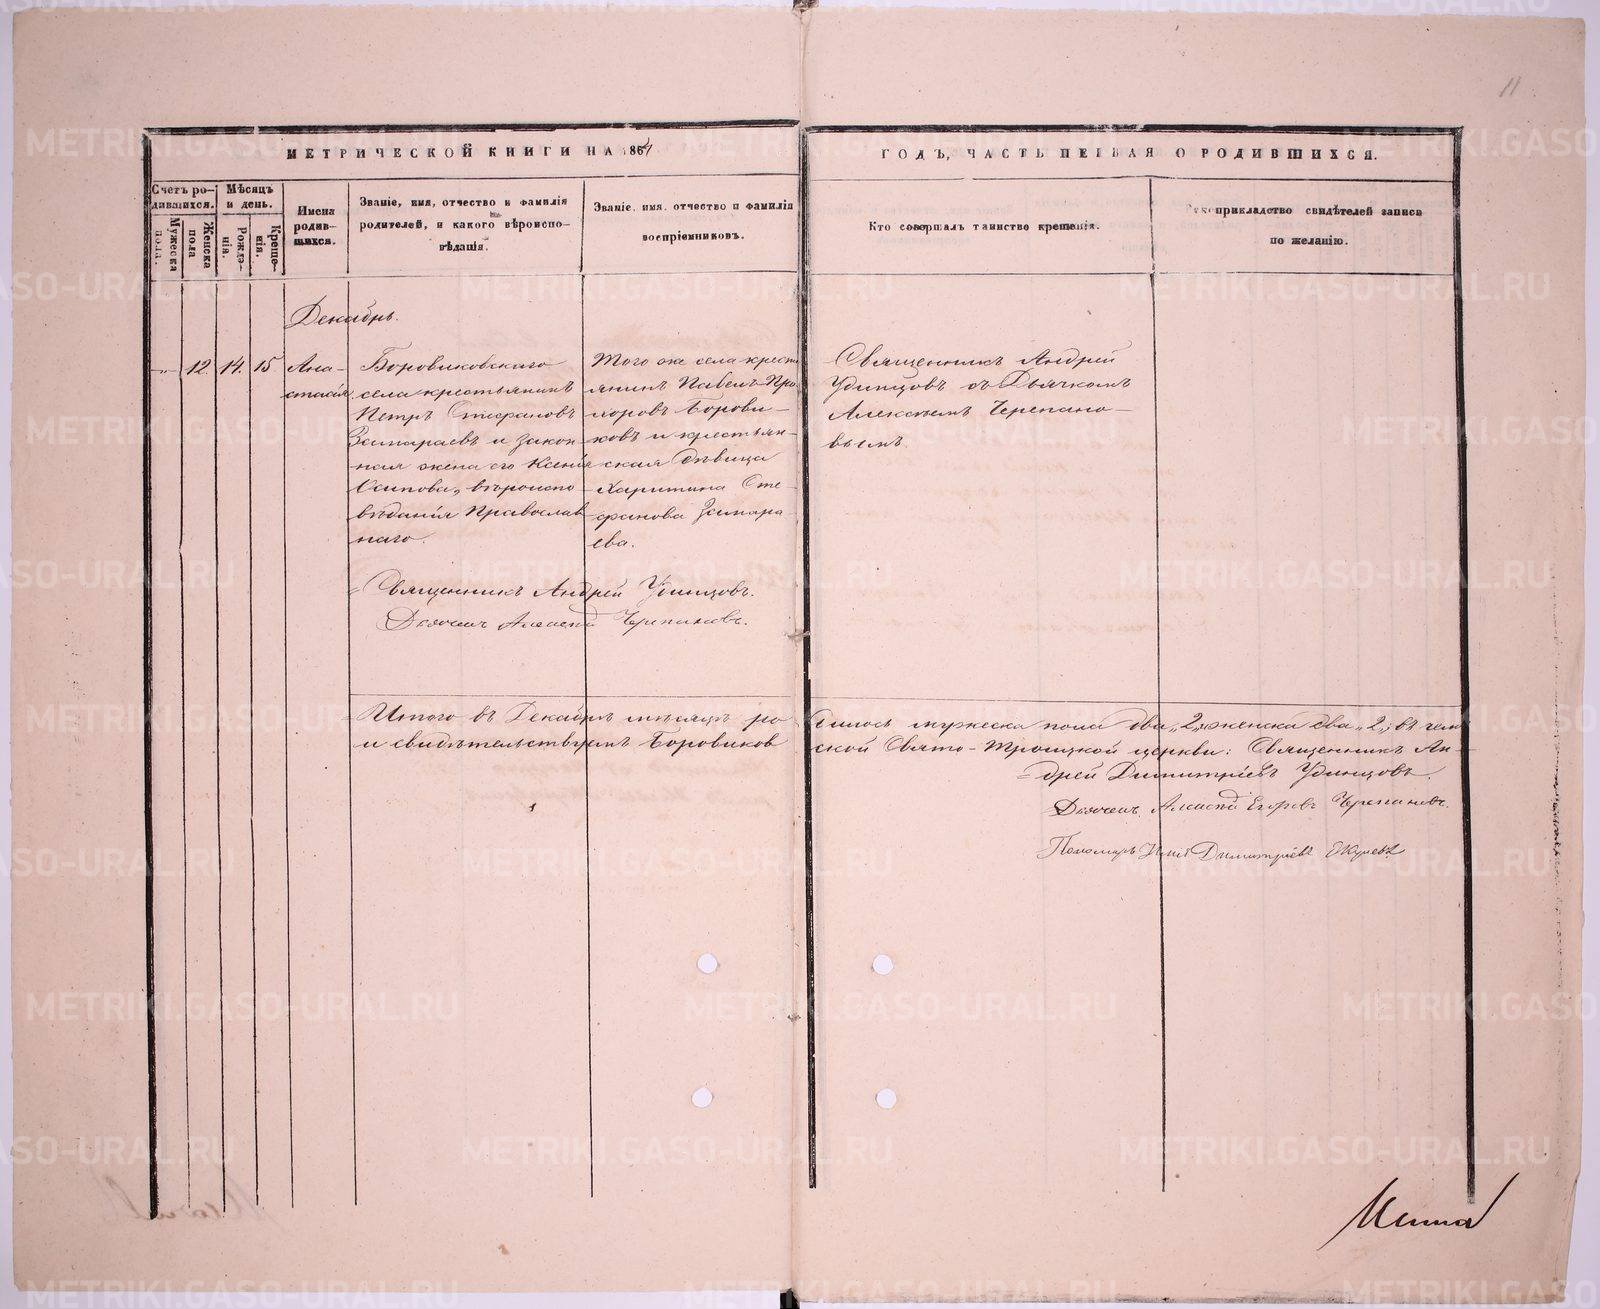 11
МЕТРИЧЕСКОЙ КНИГИ НА 1864
ГОДЪ, ЧАСТЬ ПЕРВАЯ О РОДИВШИХСЯ.
Счетъ ро-
дившихся.
Мужеска
пола.
Женска
пола
Мѣсяцъ
и день.
Рожде-
нія.
Креще-
нія.
Имена
родив-
шихся.
Званіе, имя, отчество и фамилія
родителей, и какого вѣроиспо-
вѣданія.
Званіе, имя, отчество и фамилія
воспріемниковъ.
Кто совершалъ таинство крещенія.
Рукоприкладство свидѣтелей записи
по желанію.
Декабрь.
12. 14. 15
Ана-
стасія
Боровиковскаго
села крестьянинъ
Петръ Стефановъ
Замараевъ и закон-
ная жена его Ксенія
Осипова, вѣроиспо
вѣданія Православ
наго.
Того же села крестъ
янинъ Павелъ Про
хоровъ Борови-
ковъ и крестьян-
ская дѣвица
Харитина Сте-
фанова Замара
ева.
Священникъ Андрей
Удинцовъ съ Дьячкомъ
Алексѣемъ Черепано-
вымъ.
Священникъ Андрей Удинцовъ.
Дьячекъ Алексѣй Черепановъ.
Итого въ Декабрѣ мѣсяцѣ ро дилось мужеска пола два „2„ женска два „2„ въ чемъ
и свидѣтельствуемъ Боровиков ской Свято-Троицкой церкви: Священникъ Ан-
дрей Димитріевъ Удинцовъ.
Дьячекъ Алексѣй Егоровъ Черепановъ.
Пономарь Димитріевъ
METRIKI.GASO-URAL.RU